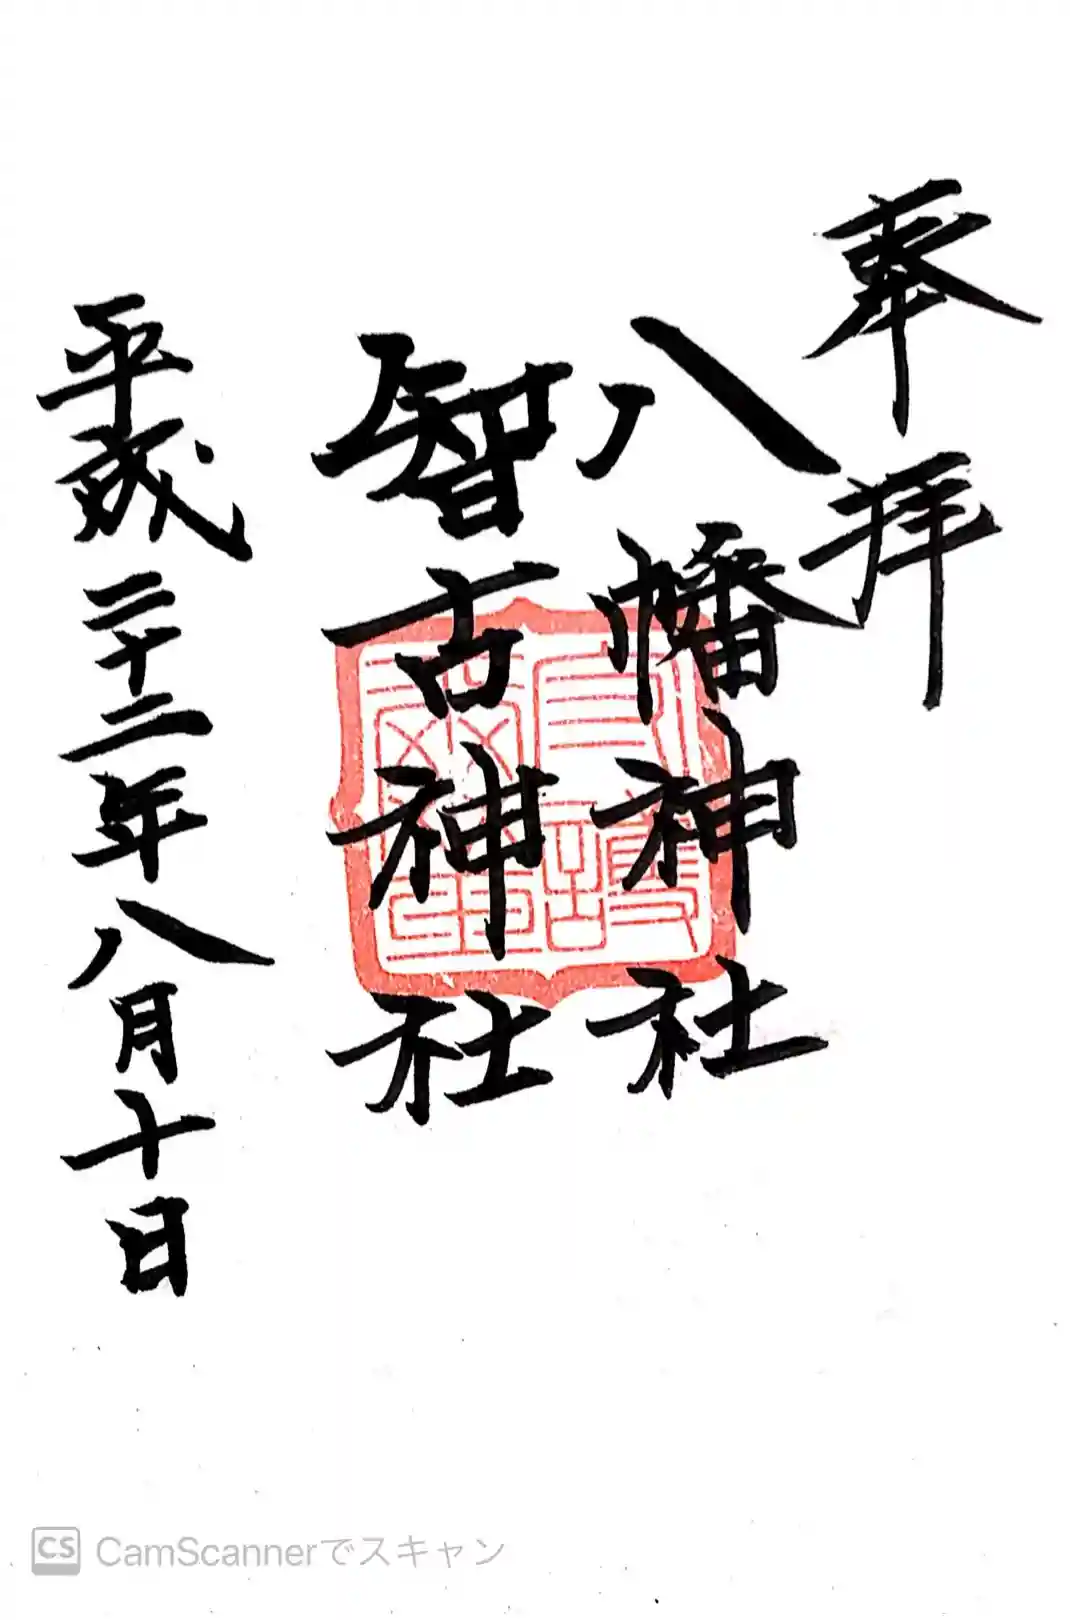 奉拝
八幡神社
智古神社
平成二十二年八月十日
CS CamScannerでスキャン